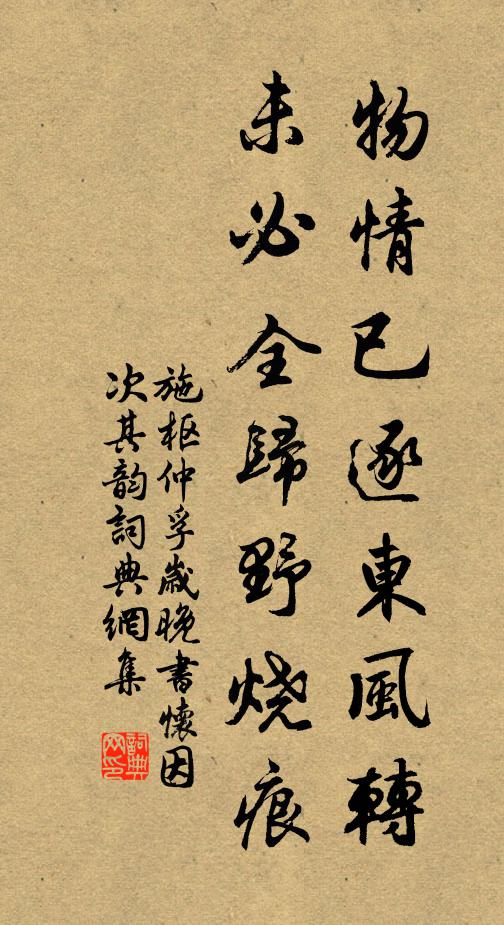 物情已逐東風轉
未必全歸野烧痕
施枢仲孚歲晚書懷因
次其韵詞典網集
詞典网印